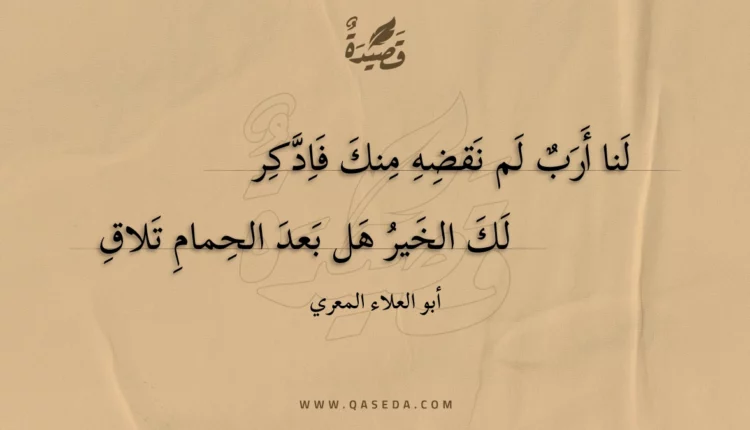 قَصِيدَةٌ
لَنا أَرَبٌ لَم نَقضِهِ مِنكَ فَاِدَّكِر
لَكَ الخَيرُ هَل بَعدَ الحِمامِ تَلاقِ
أبو العلاء المعري
WWW.QASEDA.COM